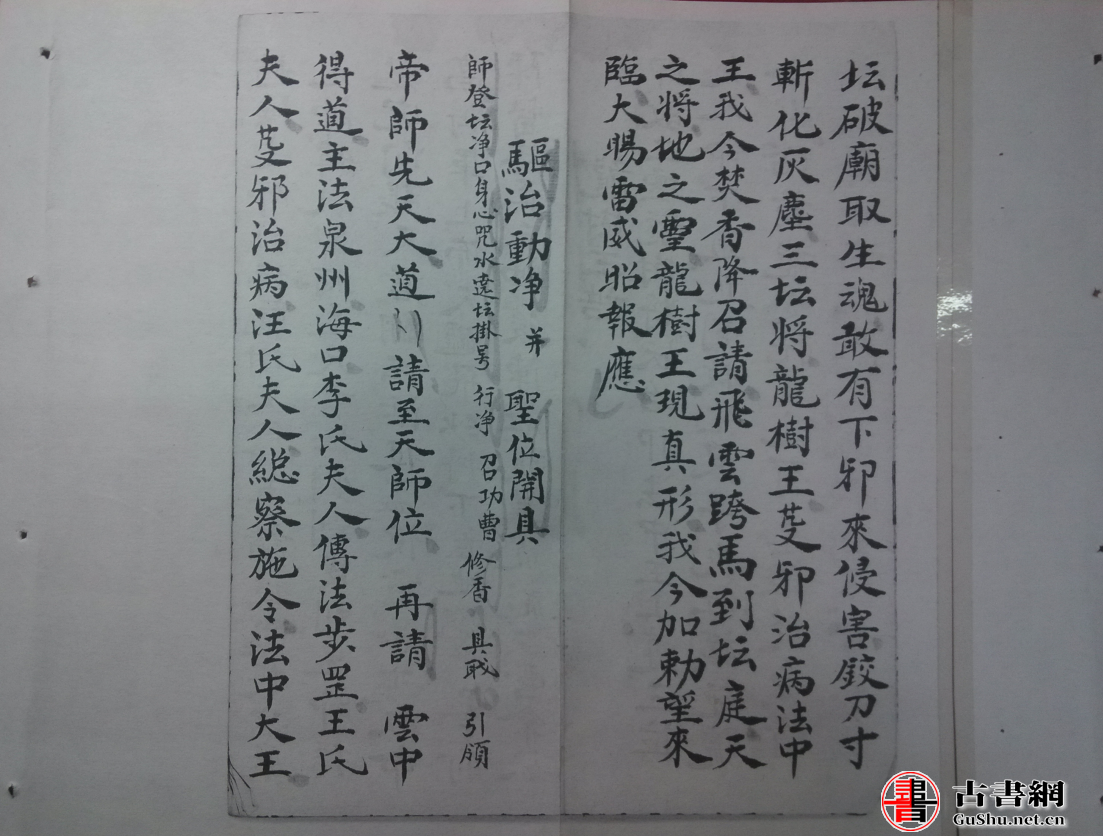 坛破廟取生魂敢有下邪來侵害鉸刀寸
斬化灰塵三坛将龍樹王芟邪治病法中
王我今焚香降召請飛雲跨馬到坛庭天
之将地之靈龍樹王現真形我今加勅望來
臨大賜雷威昭報應
驅治動净 并 聖位開具
師登坛净口身心咒水遶坛掛号 行净 召功曹 修香 具職 引願
帝師先天大道 請至天師位 再請 雲中
得道主法泉州海口李氏夫人傳法步罡王氏
夫人芟邪治病汪氏夫人総察施令法中大王
古書網
GuShu.net.cn